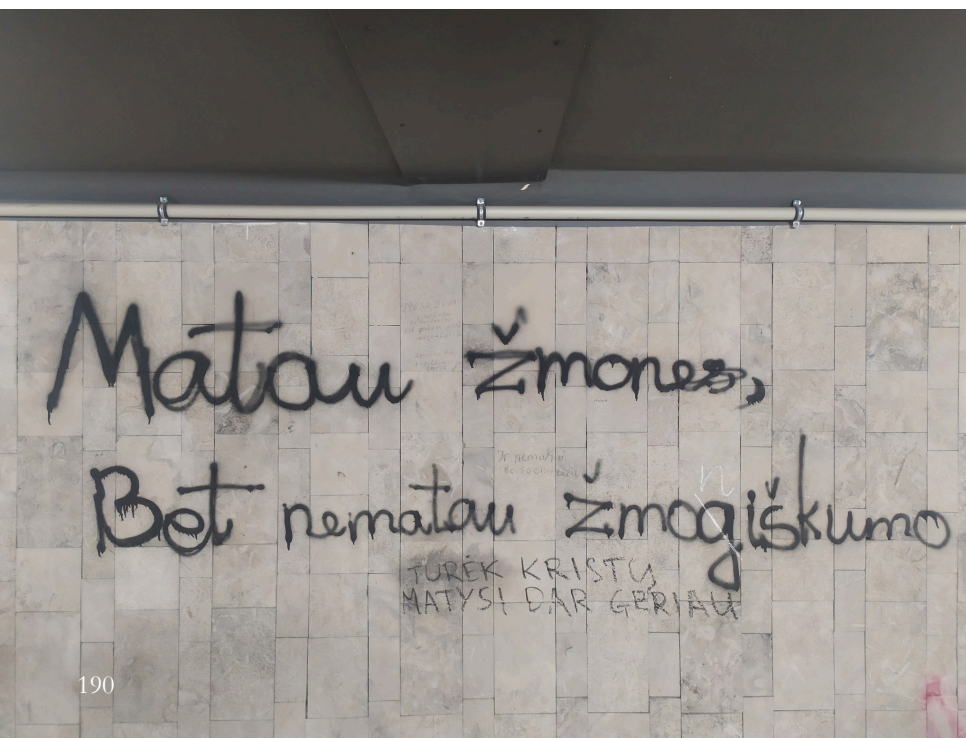 Matau žmones,
Bet nematau žmogiškumo
TURĖK KRISTŲ
MATYSI DAR GERIAU
190